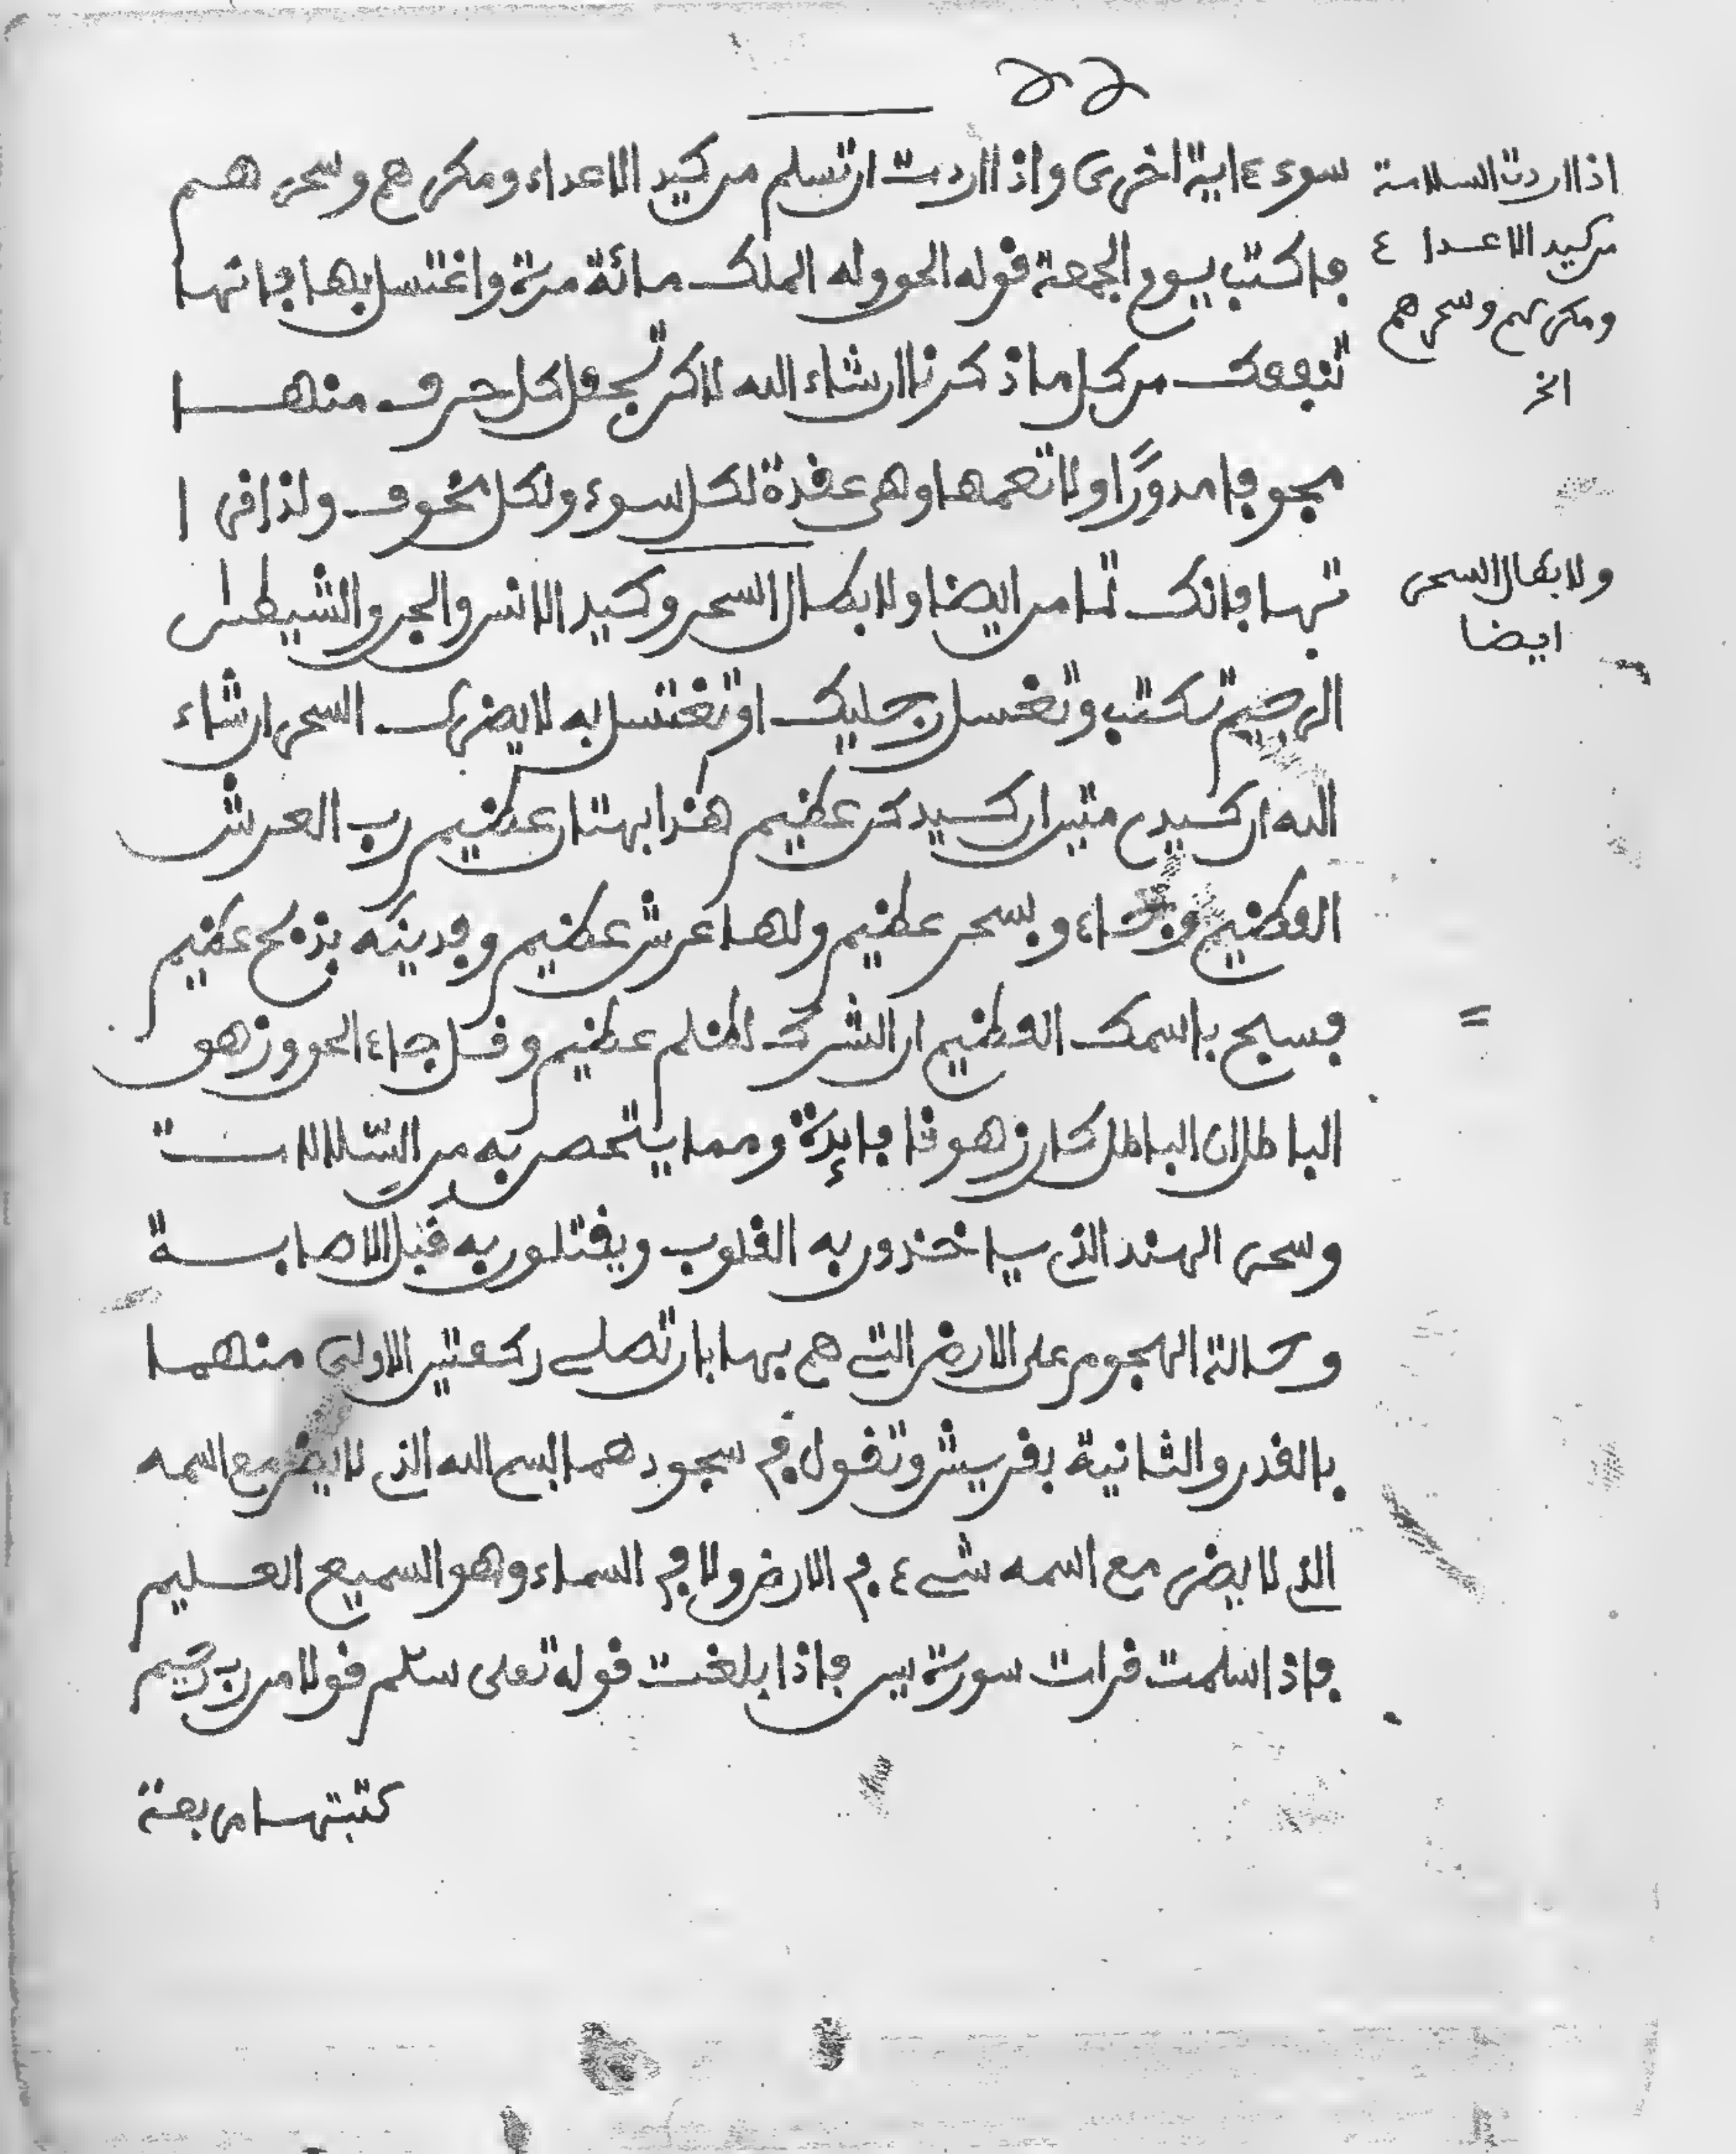 سوء ء اية اخرى واذا اردت ان تسلم من كيد الاعداء ومكرهم وسحرهم
فاكتب يوم الجمعة قوله الحق وله الملك مائة مرة واغتسل بها فانها
تنفعك من كل ما ذكرنا ان شاء الله لاكن تجعل كل حرف منها
مجوفا مدورًا ولا تعمها وهى عقدة لكل سوء ولكل مخوف ولذا قرا
تها فانك تامن ايضا ولابطال السحر وكيد الانس والجن والشيطن
الرجيم تكتب وتغسل رجليك او تغتسل به لا يضرك السحر ان شاء
الله ان كيدى متين ان كيدكن عظيم هذا بهتان عظيم رب العرش
العظيم وجاء و بسحر عظيم ولها عرش عظيم وفدينه بذبح عظيم
فسبح باسمك العظيم ان الشرك لظلم عظيم وقل جاء الحق وزهق
الباطل ان الباطل كان زهوقا فايدة ومما يتحصن به من السلالات
وسحر الهند الذى ياخذون به القلوب ويقتلون به قبل الاصابة
وحالة الهجوم على الارض التى هم بها بان تصلى ركعتين الاولى منهما
بالقدر والثانية بقريش وتقول فى سجودهما بسم الله الذى لا يضر مع اسمه
الذى لا يضر مع اسمه شىء فى الارض ولا فى السماء وهو السميع العليم
فاذا سلمت قرات سورة يس فاذا بلغت قوله تعلى سلم قولا من رب رحيم
كتبتها مربعة
اذا اردت السلامة
من كيد الاعداء
ومكرهم وسحرهم
الخ
ولابطال السحر
ايضا